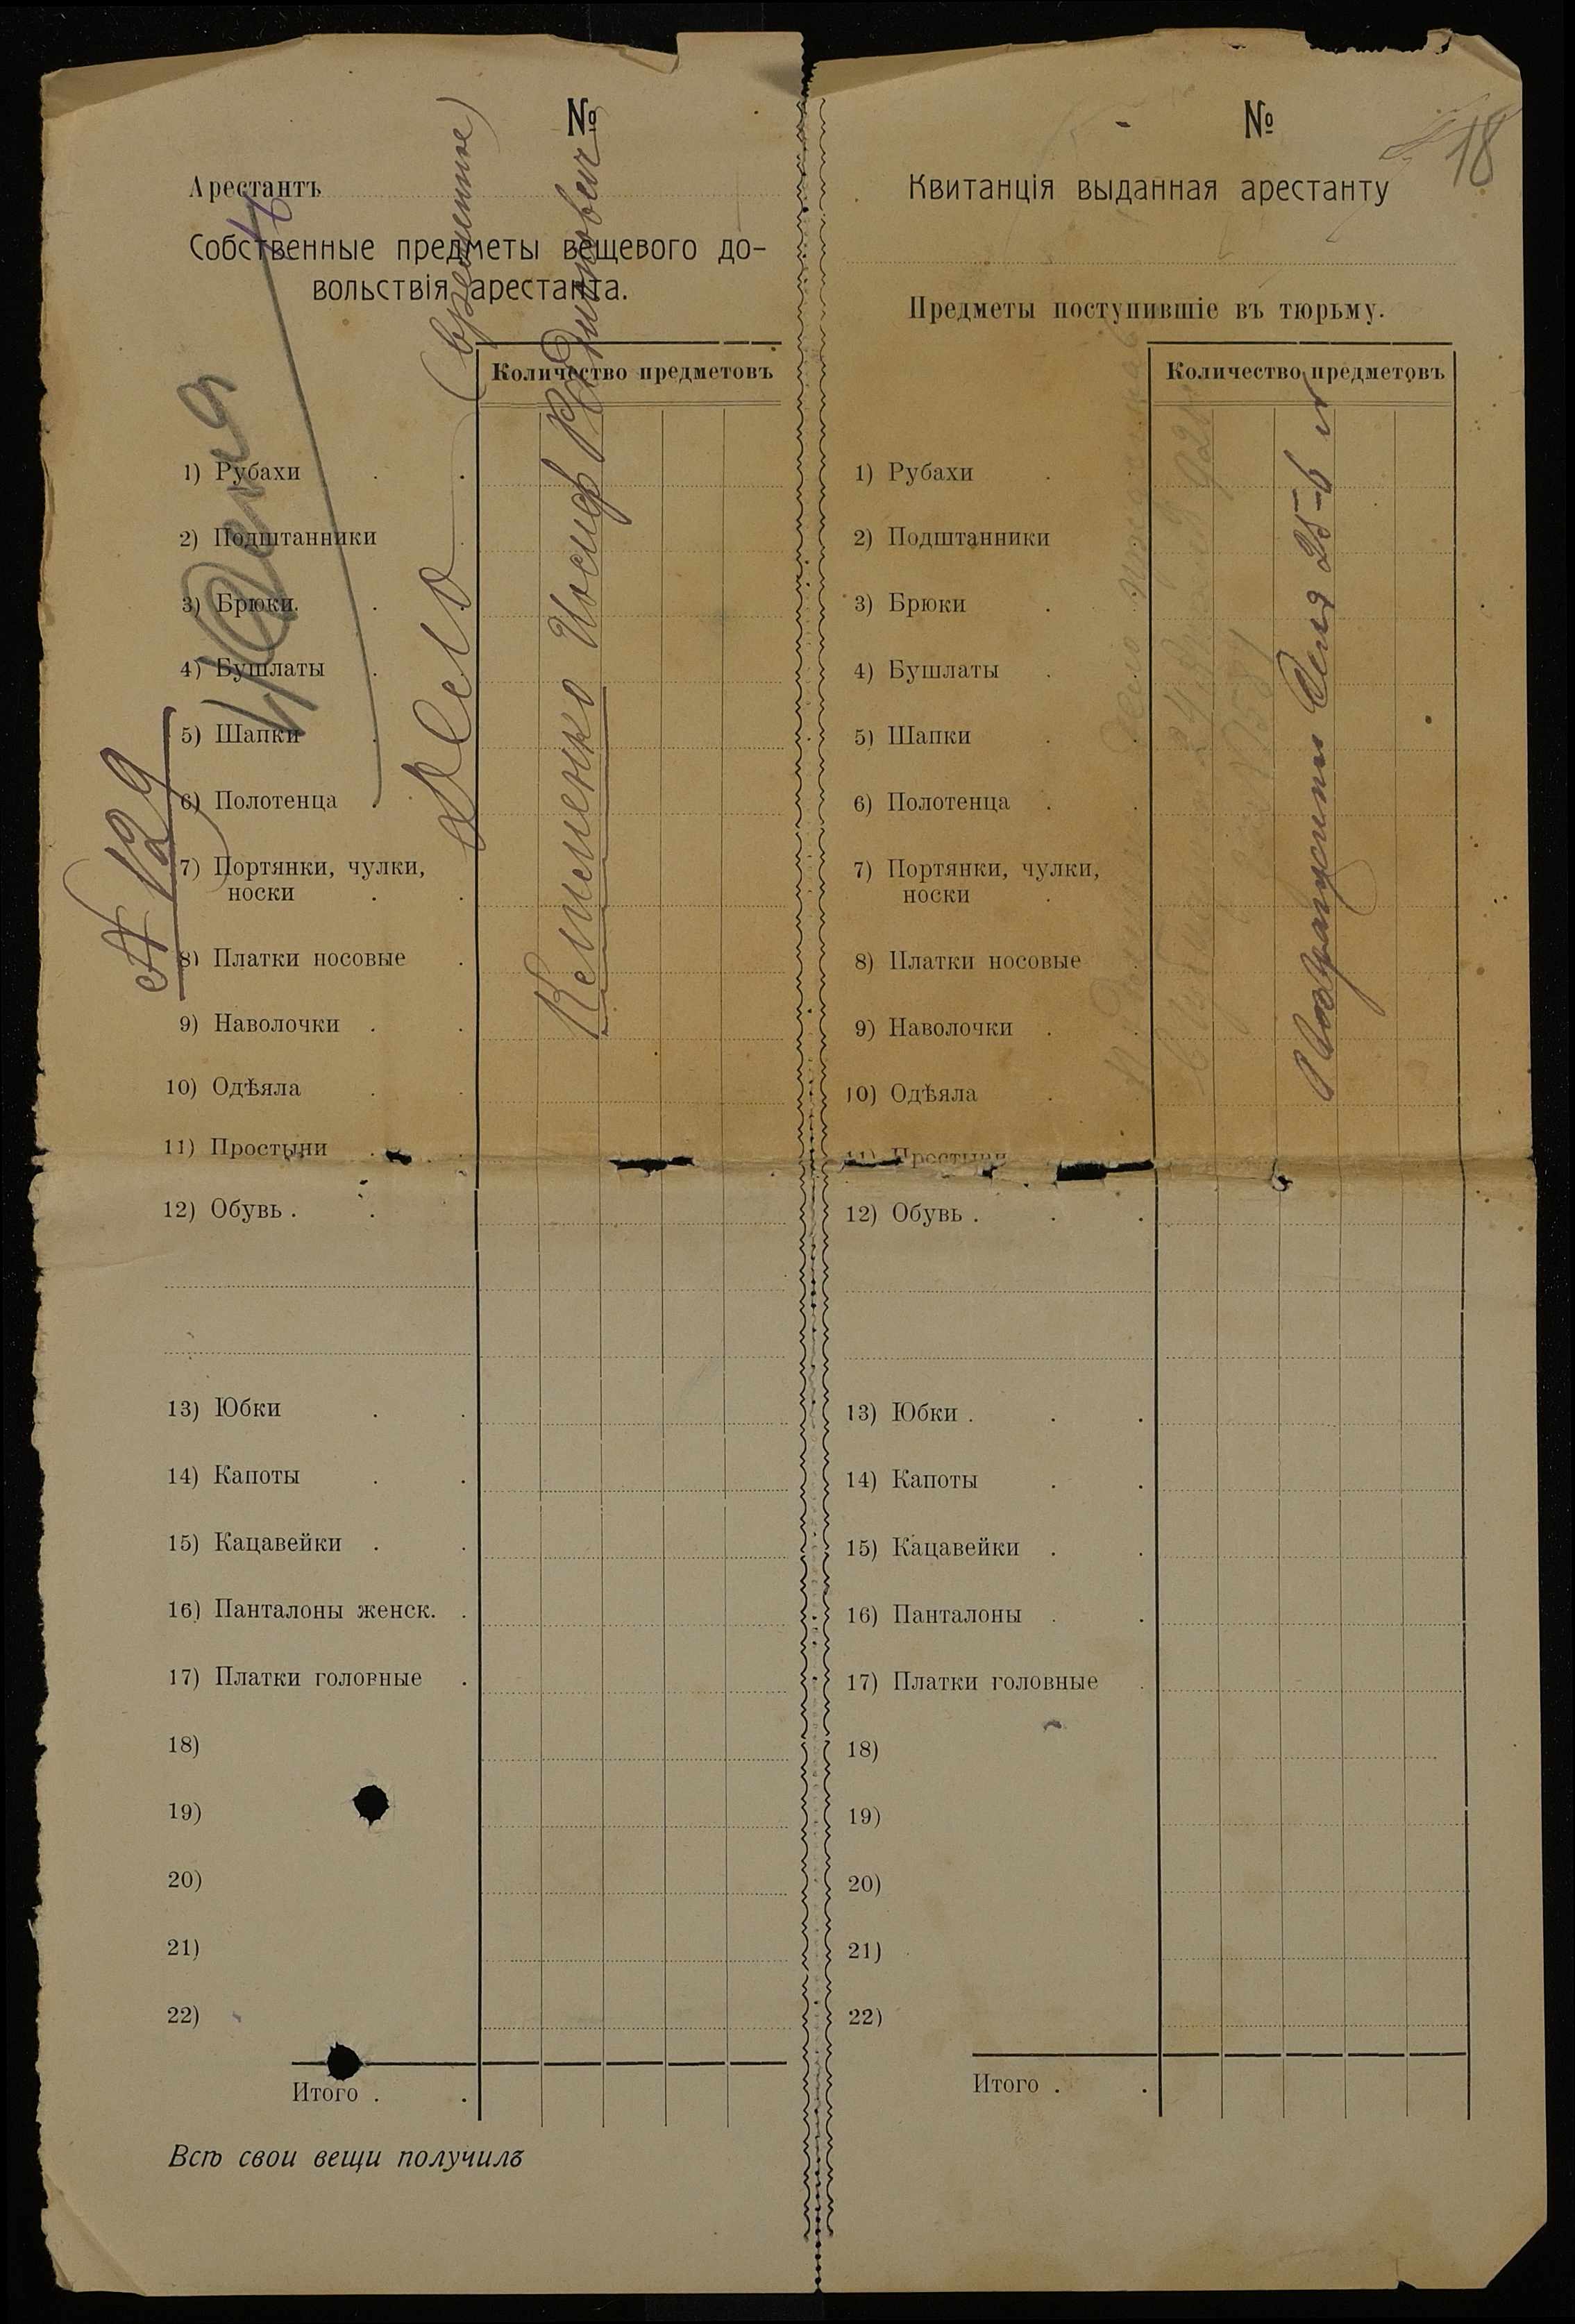 №
Арестантъ
Собственные предметы вещевого до-
вольствія арестанта.
Количество предметовъ
1) Рубахи
2) Подштанники
3) Брюки
4) Бушлаты
5) Шапки
6) Полотенца
7) Портянки, чулки,
носки
8) Платки носовые
9) Наволочки
10) Одѣяла
11) Простыни
12) Обувь
13) Юбки
14) Капоты
15) Кацавейки
16) Панталоны женск.
17) Платки головные
18)
19)
20)
21)
22)
Итого
Всѣ свои вещи получилъ
№ 129
Дело
(временное)
Клименко Иосиф
№
18
Квитанція выданная арестанту
Предметы поступившіе въ тюрьму.
Количество предметовъ
1) Рубахи
2) Подштанники
3) Брюки
4) Бушлаты
5) Шапки
6) Полотенца
7) Портянки, чулки,
носки
8) Платки носовые
9) Наволочки
10) Одѣяла
11) Простыни
12) Обувь
13) Юбки
14) Капоты
15) Кацавейки
16) Панталоны
17) Платки головные
18)
19)
20)
21)
22)
Итого